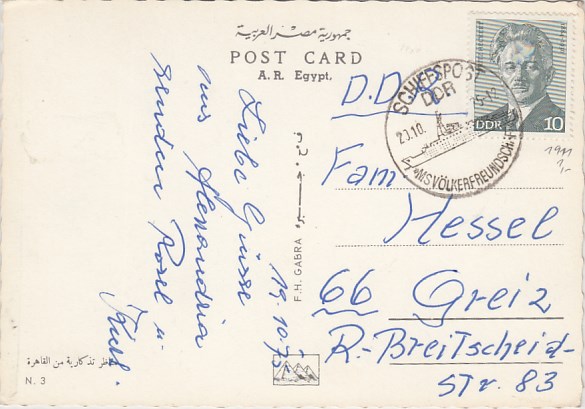 جمهورية مصر العربية
POST CARD
A. R. Egypt.
Liebe Grüsse
aus Alexandria
senden Rosel u.
Kurt.
19.10.75
D.D.R.
Fam
Hessel
66 Greiz
R.-Breitscheid-
Str. 83
SCHIFFSPOST
DDR
20.10.
MS VÖLKERFREUNDSCHAFT
DDR 10
F. H. GABRA
تذكارية من القاهرة
N. 3